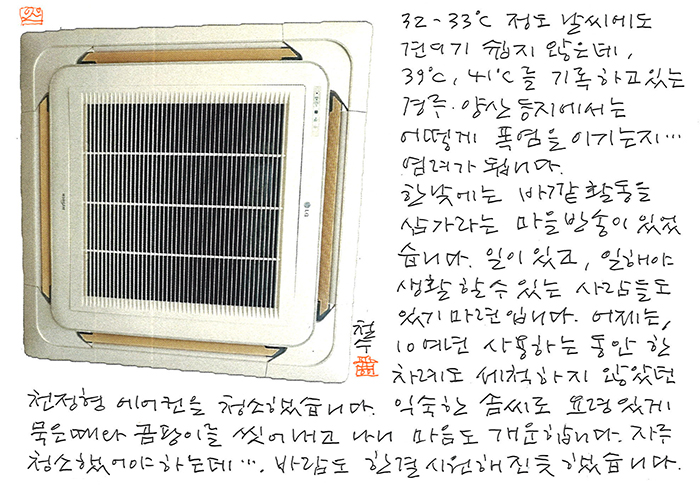 32-33℃ 정도 날씨에도
견디기 쉽지 않은데,
39℃, 41℃를 기록하고있는
경주·양산 등지에서는
어떻게 폭염을 이기는지…
염려가 됩니다.
한낮에는 바깥활동을
삼가라는 마을방송이 있었
습니다. 일이 있고, 일해야
생활 할 수 있는 사람들도
있기 마련입니다. 어제는,
10여년 사용하는 동안 한
차례도 세척하지 않았던
천정형 에어컨을 청소했습니다. 익숙한 솜씨로 요령있게
묵은때와 곰팡이를 씻어내고 나니 마음도 개운합니다. 자주
청소했어야하는데…. 바람도 한결 시원해진듯 했습니다.
LG
철수